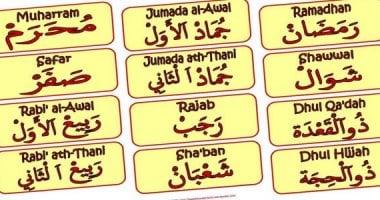 Muharram
مُحَرَّمْ
Safar
صَفَرْ
Rabi' al-Awal
رَبِيعْ اَلأَوَّلْ
Rabi' ath-Thani
رَبِيعْ اَلثَّانِي
Jumada al-Awal
جُمَادْ اَلأَوَّلْ
Jumada ath-Thani
جُمَادْ اَلثَّانِي
Rajab
رَجَبْ
Sha'ban
شَعْبَانْ
Ramadhan
رَمَضَانْ
Shawwal
شَوَالْ
Dhul Qa'dah
ذُوالْقَعْدَة
Dhul Hijjah
ذُوالْحِجَّة